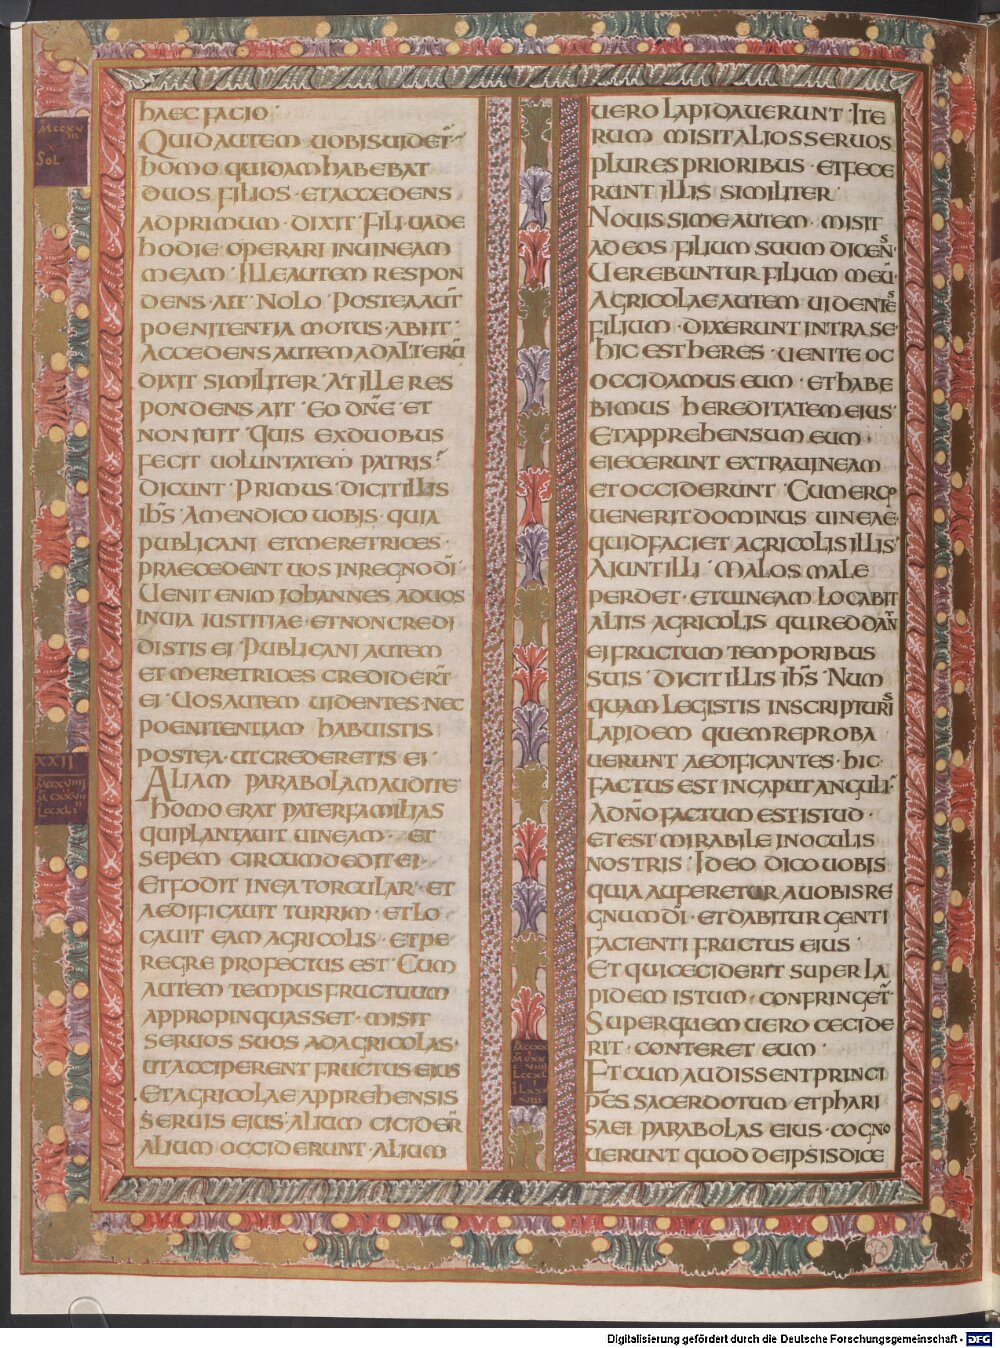 HAEC FACIO
QUID AUTEM UOBIS UIDET̄
HOMO QUIDAM HABEBAT
DUOS FILIOS · ET ACCEDENS
AD PRIMUM · DIXIT · FILI UADE
HODIE OPERARI IN UINEAM
MEAM · ILLE AUTEM RESPON
DENS · AIT · NOLO · POSTEA AUT̄
POENITENTIA MOTUS · ABIIT ·
ACCEDENS AUTEM AD ALTERŪ
DIXIT SIMILITER · AT ILLE RES
PONDENS AIT · EO DN̄E · ET
NON IUIT · QUIS EX DUOBUS
FECIT UOLUNTATEM PATRIS
DICUNT · PRIMUS · DICIT ILLIS
IH̄S · AMEN DICO UOBIS · QUIA
PUBLICANI ET MERETRICES ·
PRAECEDENT UOS IN REGNO DĪ ·
UENIT ENIM IOHANNES AD UOS
IN UIA IUSTITIAE · ET NON CREDI
DISTIS EI · PUBLICANI AUTEM
ET MERETRICES CREDIDER̄T
EI · UOS AUTEM UIDENTES · NEC
POENITENTIAM HABUISTIS
POSTEA · UT CREDERETIS EI ·
ALIAM PARABOLAM AUDITE
HOMO ERAT PATERFAMILIAS
QUI PLANTAUIT UINEAM · ET
SEPEM CIRCUMDEDIT EI ·
ET FODIT IN EA TORCULAR · ET
AEDIFICAUIT TURRIM · ET LO
CAUIT EAM AGRICOLIS · ET PE
REGRE PROFECTUS EST · CUM
AUTEM TEMPUS FRUCTUUM
APPROPINQUASSET · MISIT
SERUOS SUOS AD AGRICOLAS ·
UT ACCIPERENT FRUCTUS EIUS
ET AGRICOLAE APPREHENSIS
SERUIS EIUS · ALIUM CICIDER̄
ALIUM OCCIDERUNT · ALIUM
UERO LAPIDAUERUNT · ITE
RUM MISIT ALIOS SERUOS
PLURES PRIORIBUS · ET FECE
RUNT ILLIS SIMILITER ·
NOUISSIME AUTEM · MISIT
AD EOS FILIUM SUUM DICENS ·
UEREBUNTUR FILIUM MEŪ ·
AGRICOLAE AUTEM UIDENTES
FILIUM · DIXERUNT INTRA SE ·
HIC EST HERES · UENITE OC
OCCIDAMUS EUM · ET HABE
BIMUS HEREDITATEM EIUS ·
ET APPREHENSUM EUM ·
EIECERUNT EXTRA UINEAM
ET OCCIDERUNT · CUM ERGO
UENERIT DOMINUS UINEAE ·
QUID FACIET AGRICOLIS ILLIS
AIUNT ILLI · MALOS MALE
PERDET · ET UINEAM LOCABIT
ALIIS AGRICOLIS QUI REDDAN̄
EI FRUCTUM TEMPORIBUS
SUIS · DICIT ILLIS IH̄S · NUM
QUAM LEGISTIS IN SCRIPTURIS
LAPIDEM QUEM REPROBA
UERUNT AEDIFICANTES · HIC
FACTUS EST IN CAPUT ANGULI ·
A DN̄O FACTUM EST ISTUD ·
ET EST MIRABILE IN OCULIS
NOSTRIS · IDEO DICO UOBIS
QUIA AUFERETUR A UOBIS RE
GNUM DI · ET DABITUR GENTI
FACIENTI FRUCTUS EIUS ·
ET QUI CECIDERIT SUPER LA
PIDEM ISTUM · CONFRINGET̄ ·
SUPER QUEM UERO CECIDE
RIT · CONTERET EUM ·
ET CUM AUDISSENT PRINCI
PES SACERDOTUM ET PHARI
SAEI PARABOLAS EIUS · COGNO
UERUNT QUOD DE IPSIS DICE
SOL
XXII
Digitalisierung gefördert durch die Deutsche Forschungsgemeinschaft - DFG